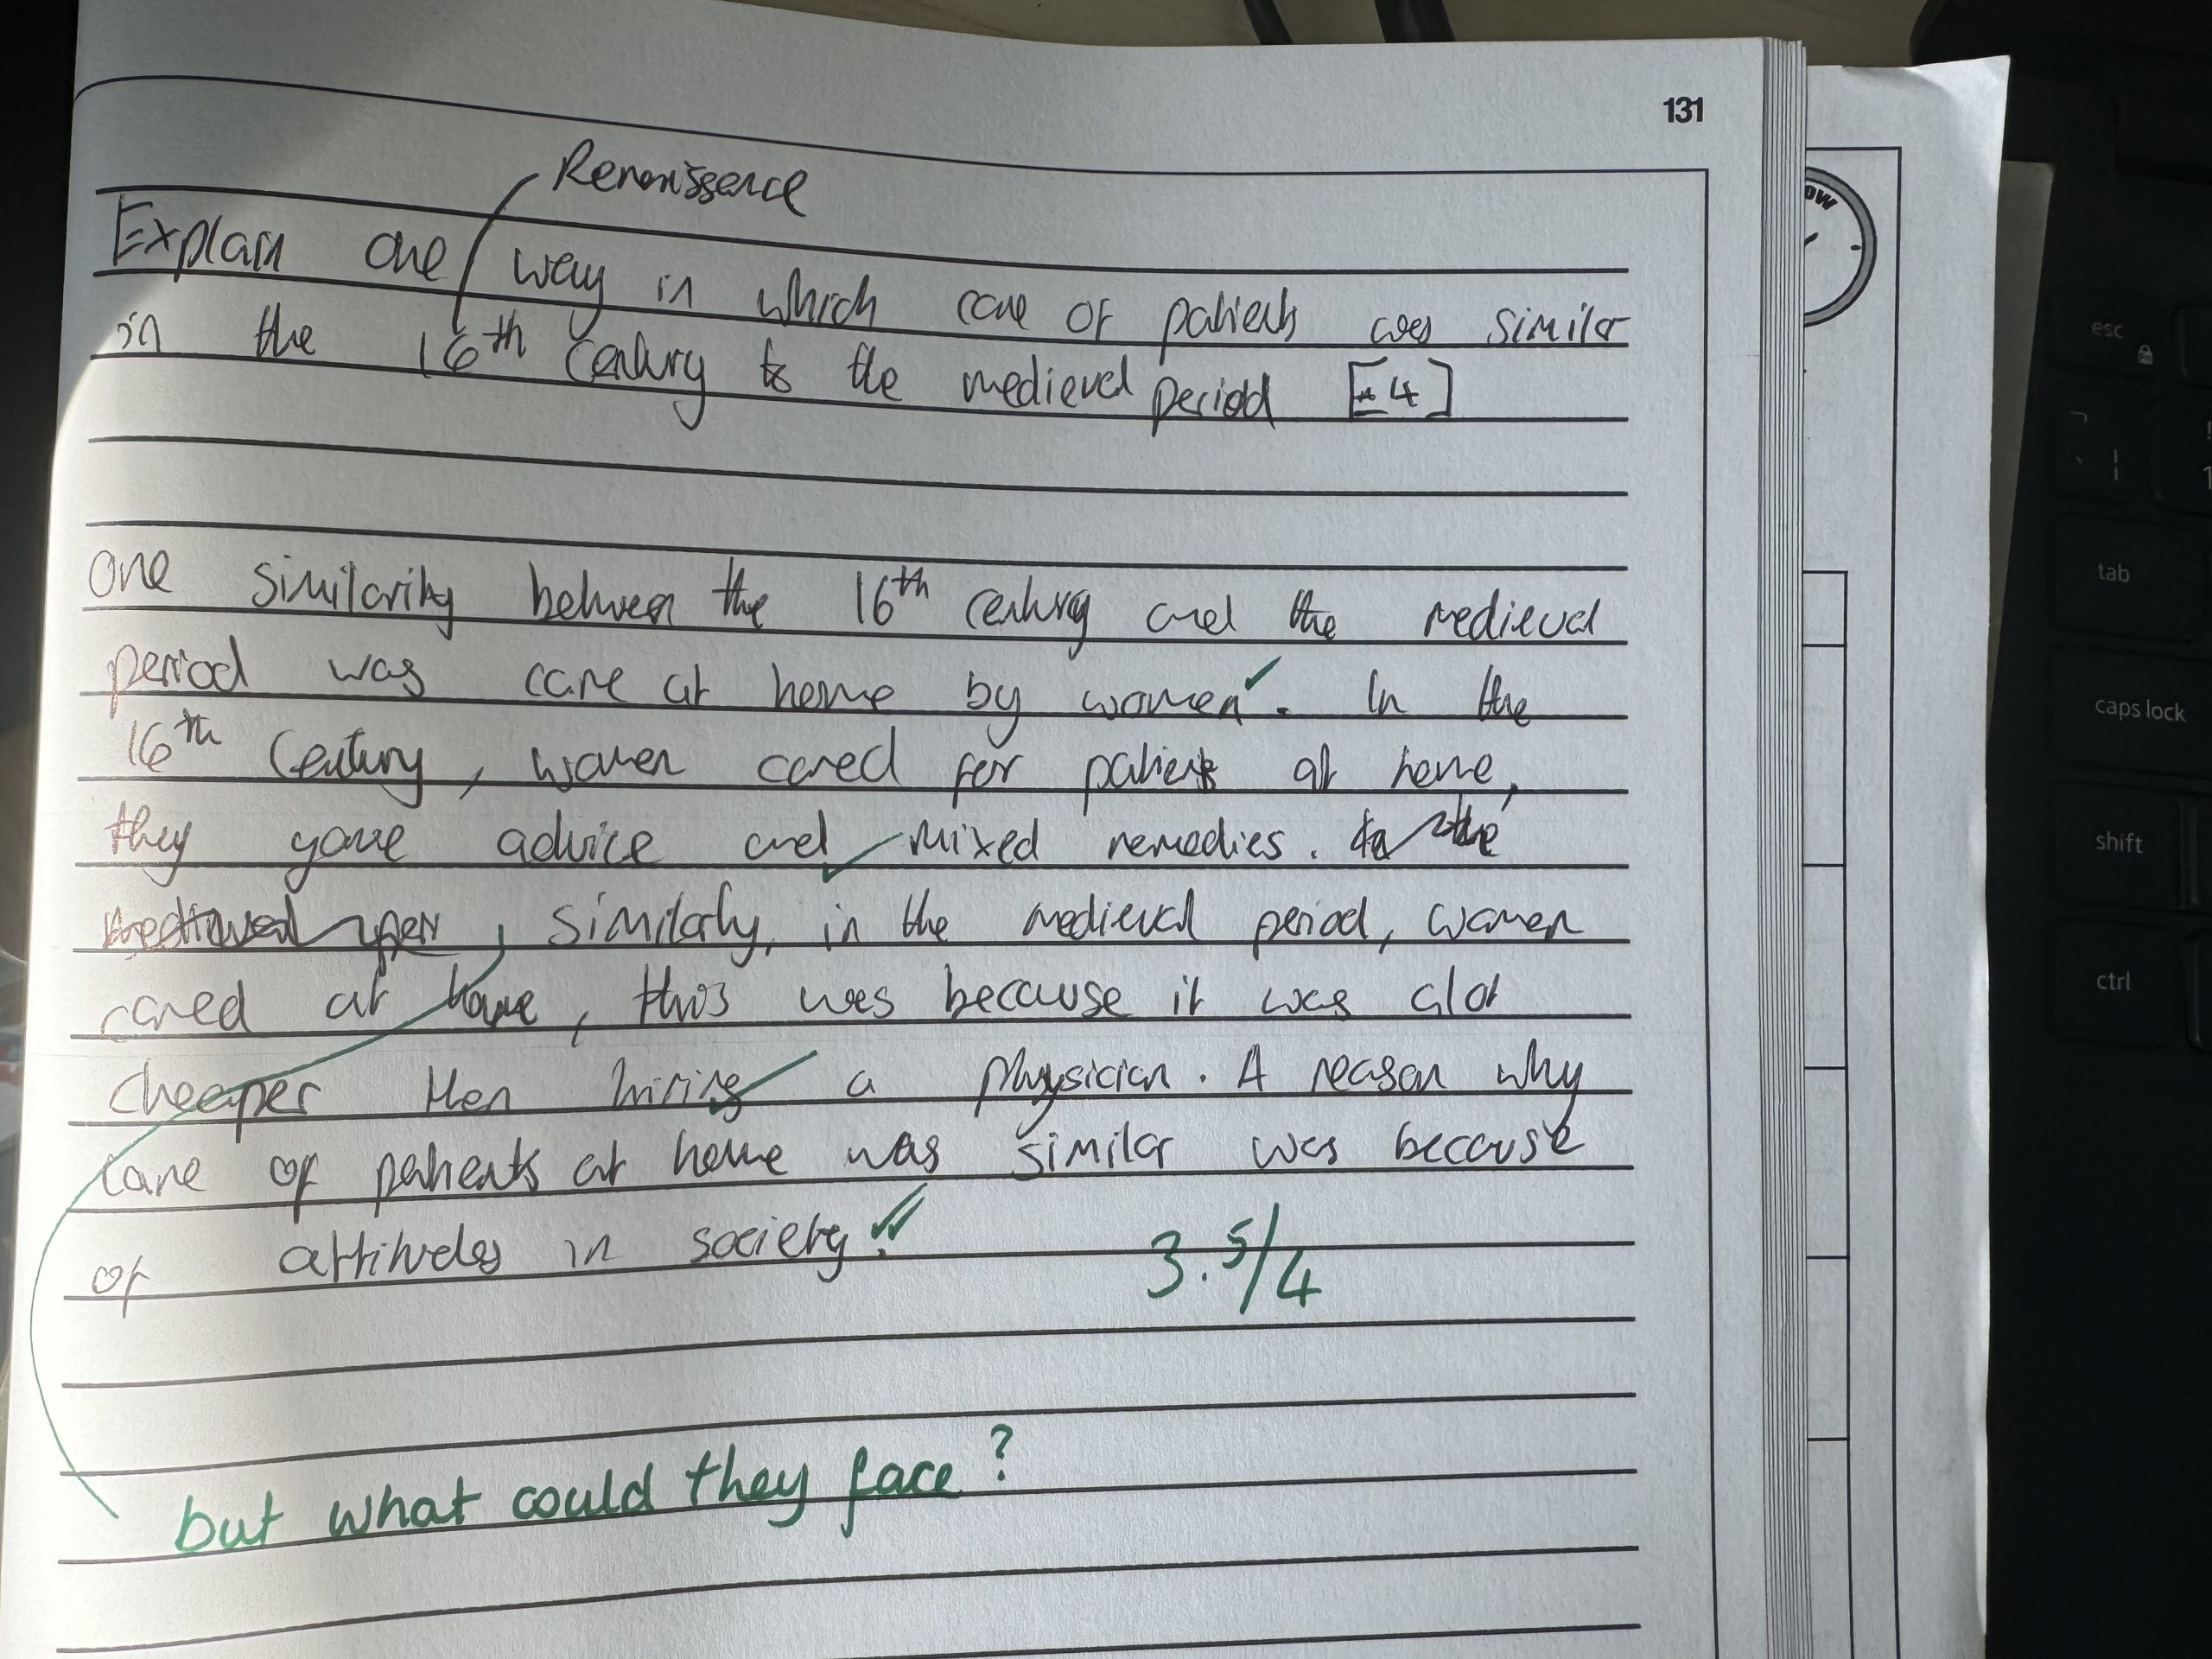 131
Renaissance
Explain one way in which care of patients was similar
in the 16th century to the medieval period [4]
One similarity between the 16th century and the medieval
period was care at home by women. In the
16th century, women cared for patients at home,
they gave advice and mixed remedies. In the
medieval per, similarly, in the medieval period, women
cared at home, this was because it was alot
cheaper then hiring a physician. A reason why
care of patients at home was similar was because
of attitudes in society.
3.5/4
but what could they face?
OW
esc
tab
caps lock
shift
ctrl